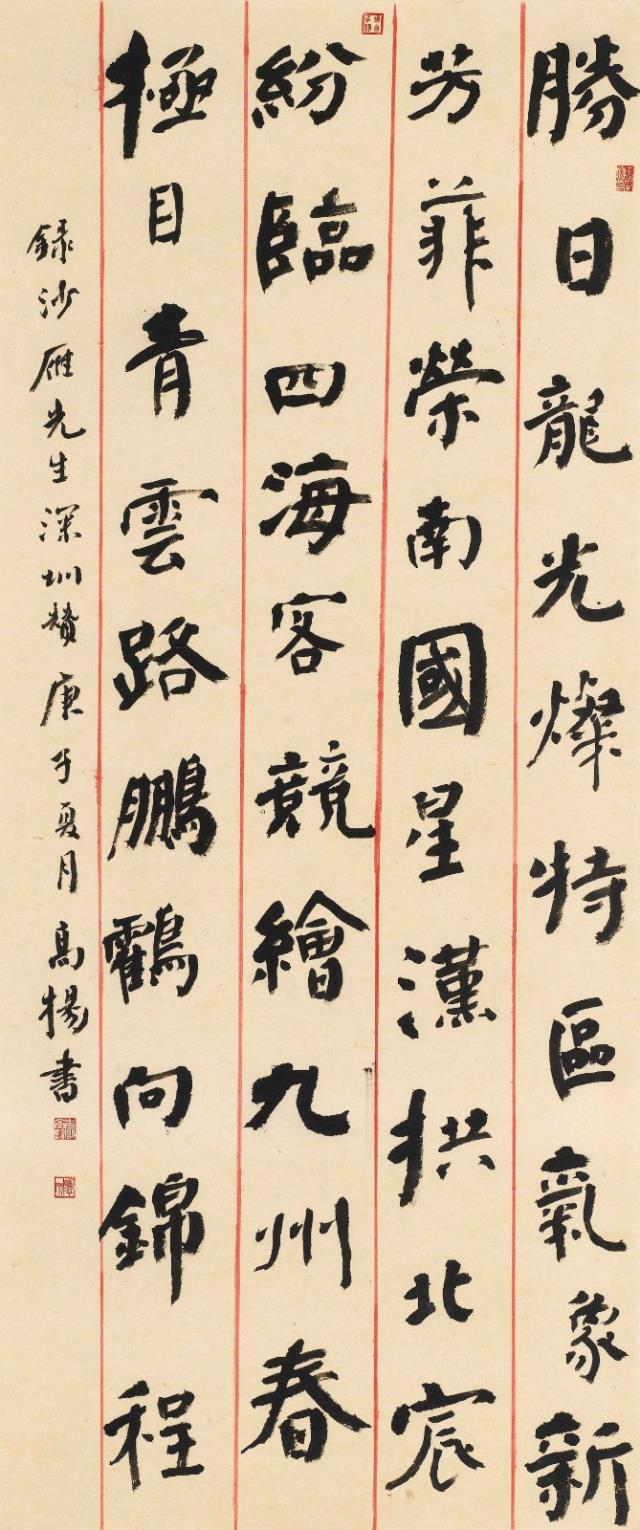 勝日龍光燦特區氣象新
芳菲榮南國星漢拱北宸
紛臨四海客競繪九州春
極目青雲路鵬鶴向錦程
錄沙雁先生深圳贊庚子夏月高楊書